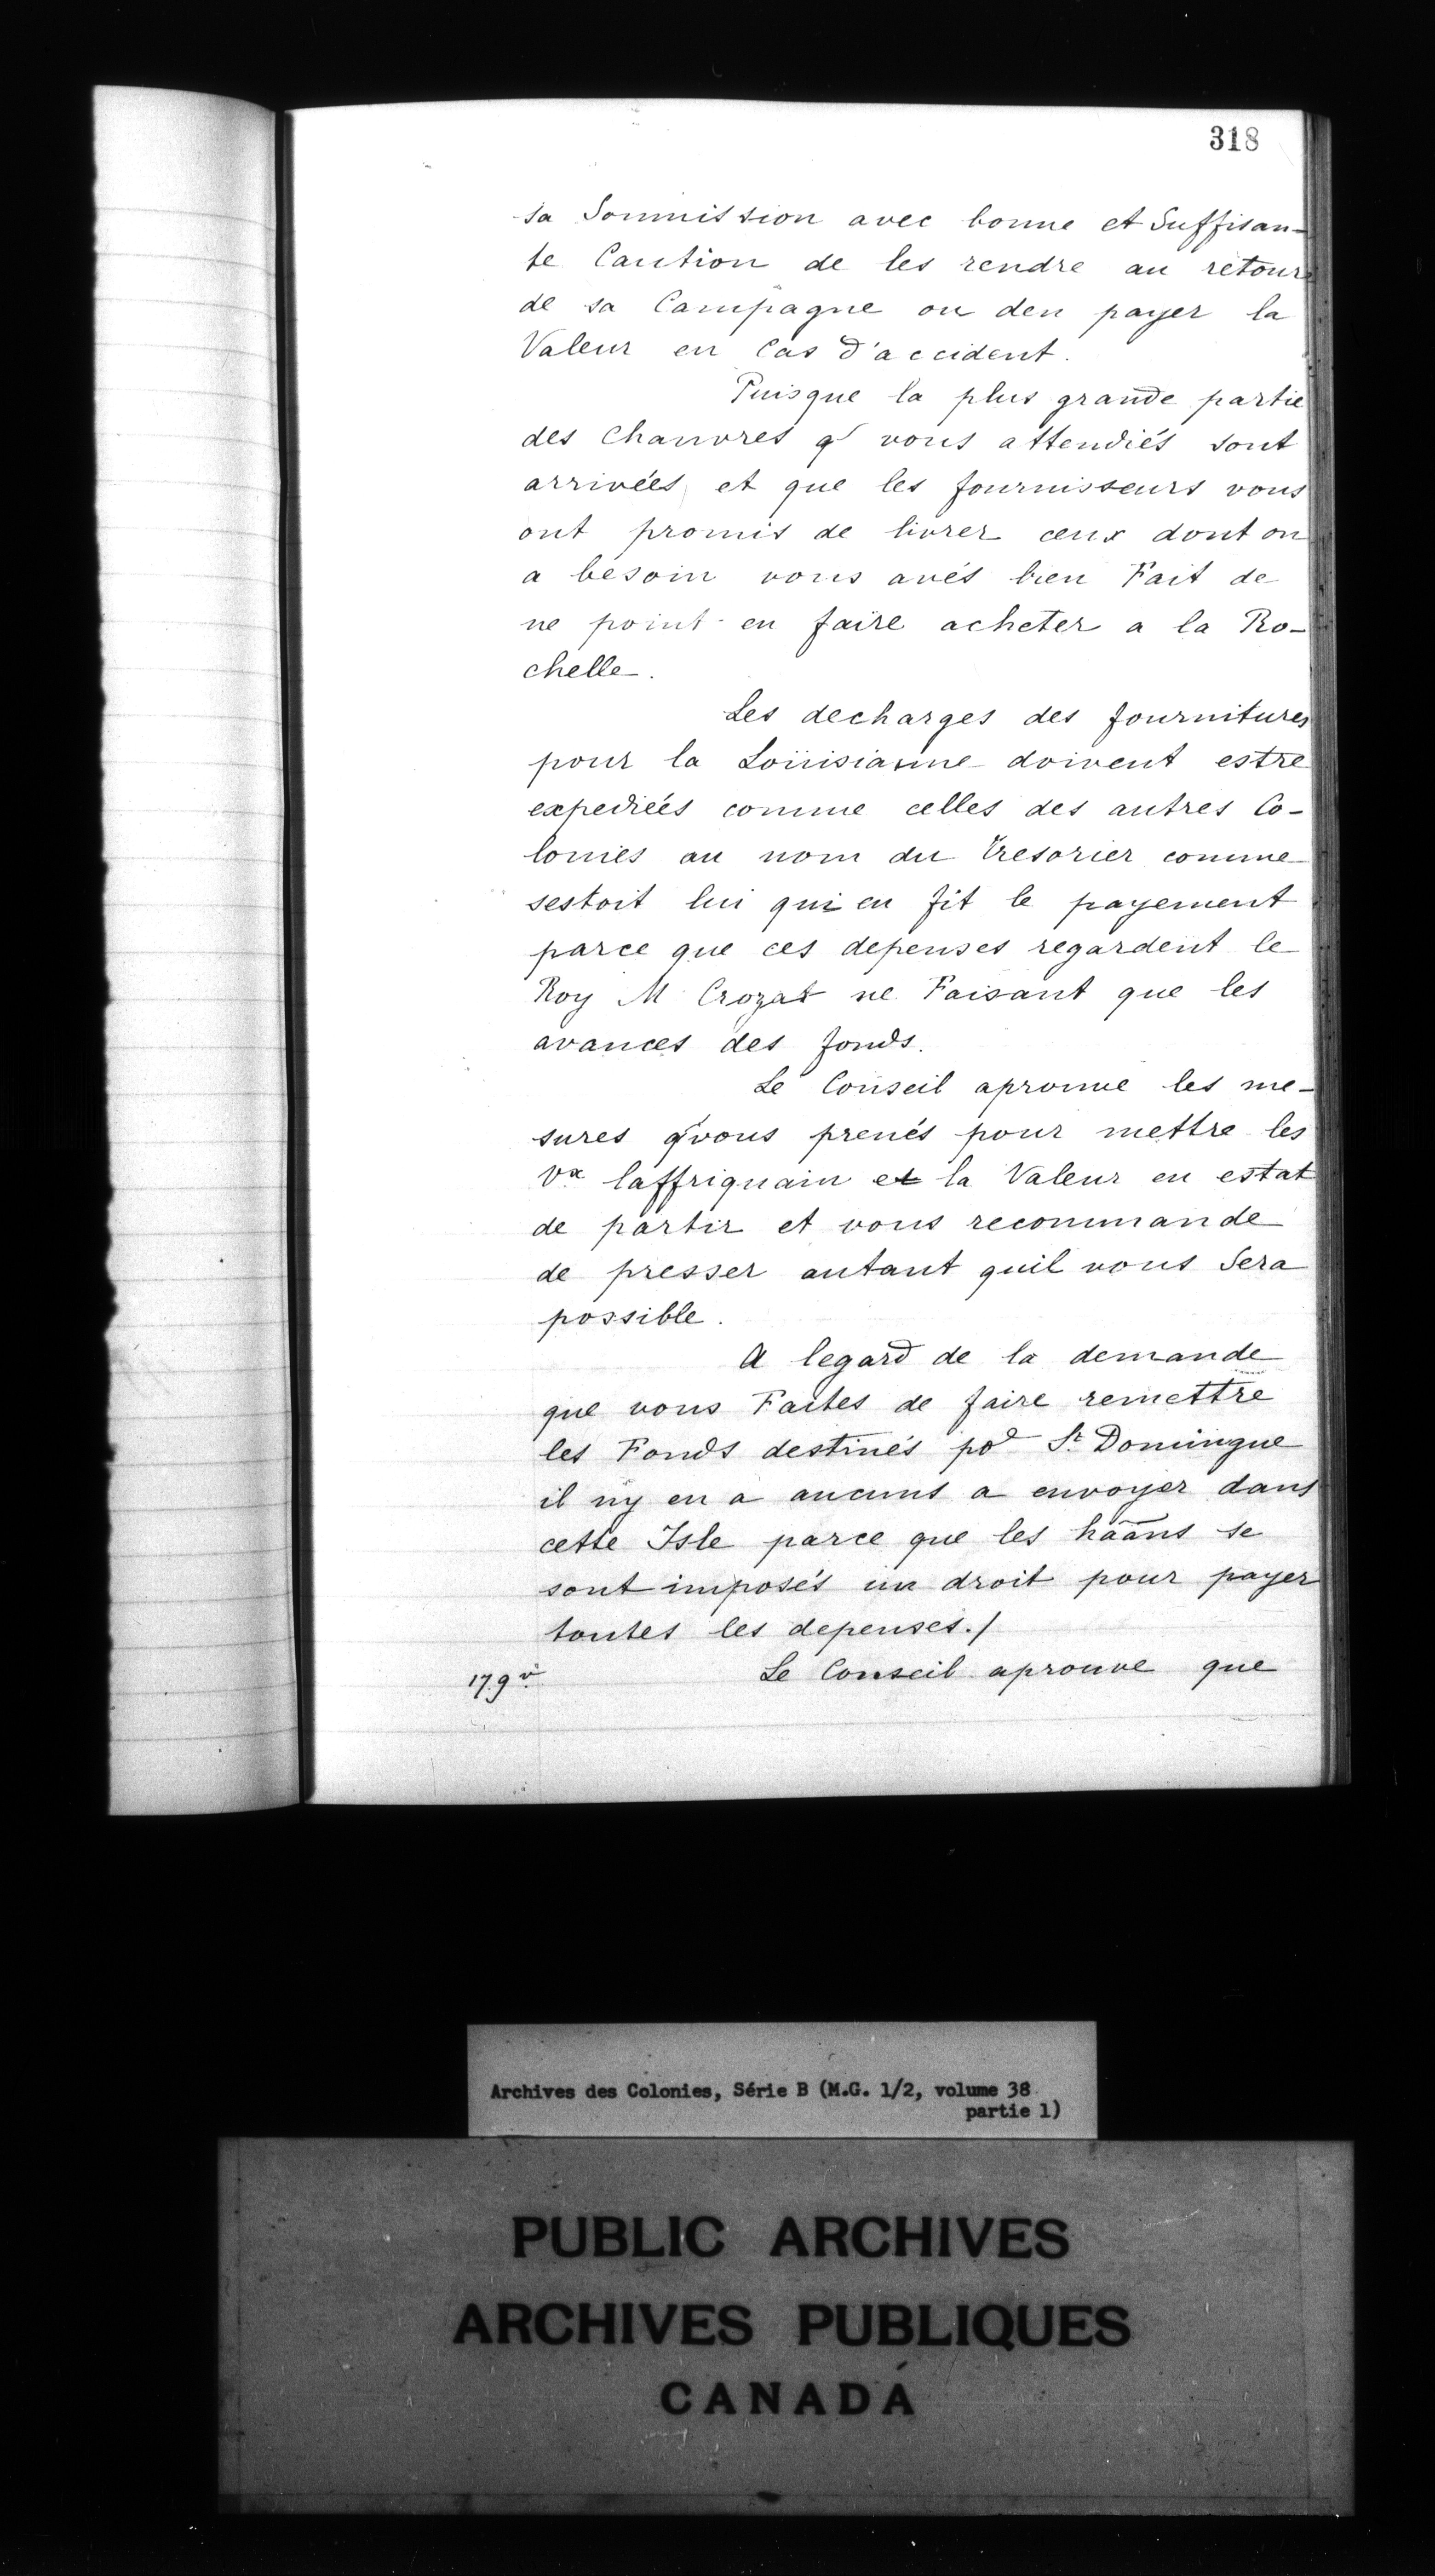 318
sa Soumission avec bonne et Suffisan-
te Caution de les rendre au retour
de sa Campagne ou den payer la
Valeur en Cas d'accident.
Puisque la plus grande partie
des Chanvres q' vous attendiés sont
arrivées, et que les fournisseurs vous
ont promis de livrer ceux dont on
a besoin vous avés bien Fait de
ne point en faire acheter a la Ro-
chelle.
Les decharges des fournitures
pour la Loüisianne doivent estre
expediées comme celles des autres Co-
lonies au nom du Tresorier comme
sestoit lui qui en fit le payement
parce que ces depenses regardent le
Roy M Crozat ne Faisant que les
avances des fonds.
Le Conseil aprouve les me-
sures q' vous prenés pour mettre les
Vx laffriquain et la Valeur en estat
de partir et vous recommande
de presser autant quil vous Sera
possible.
A legard de la demande
que vous Faites de faire remettre
les Fonds destinés por St Domingue
il ny en a aucuns a envoyer dans
cette Isle parce que les hããns se
sont imposés un droit pour payer
toutes les depenses./
17 9r.
Le Conseil aprouve que
Archives des Colonies, Série B (M.G. 1/2, volume 38
partie 1)
PUBLIC ARCHIVES
ARCHIVES PUBLIQUES
CANADA